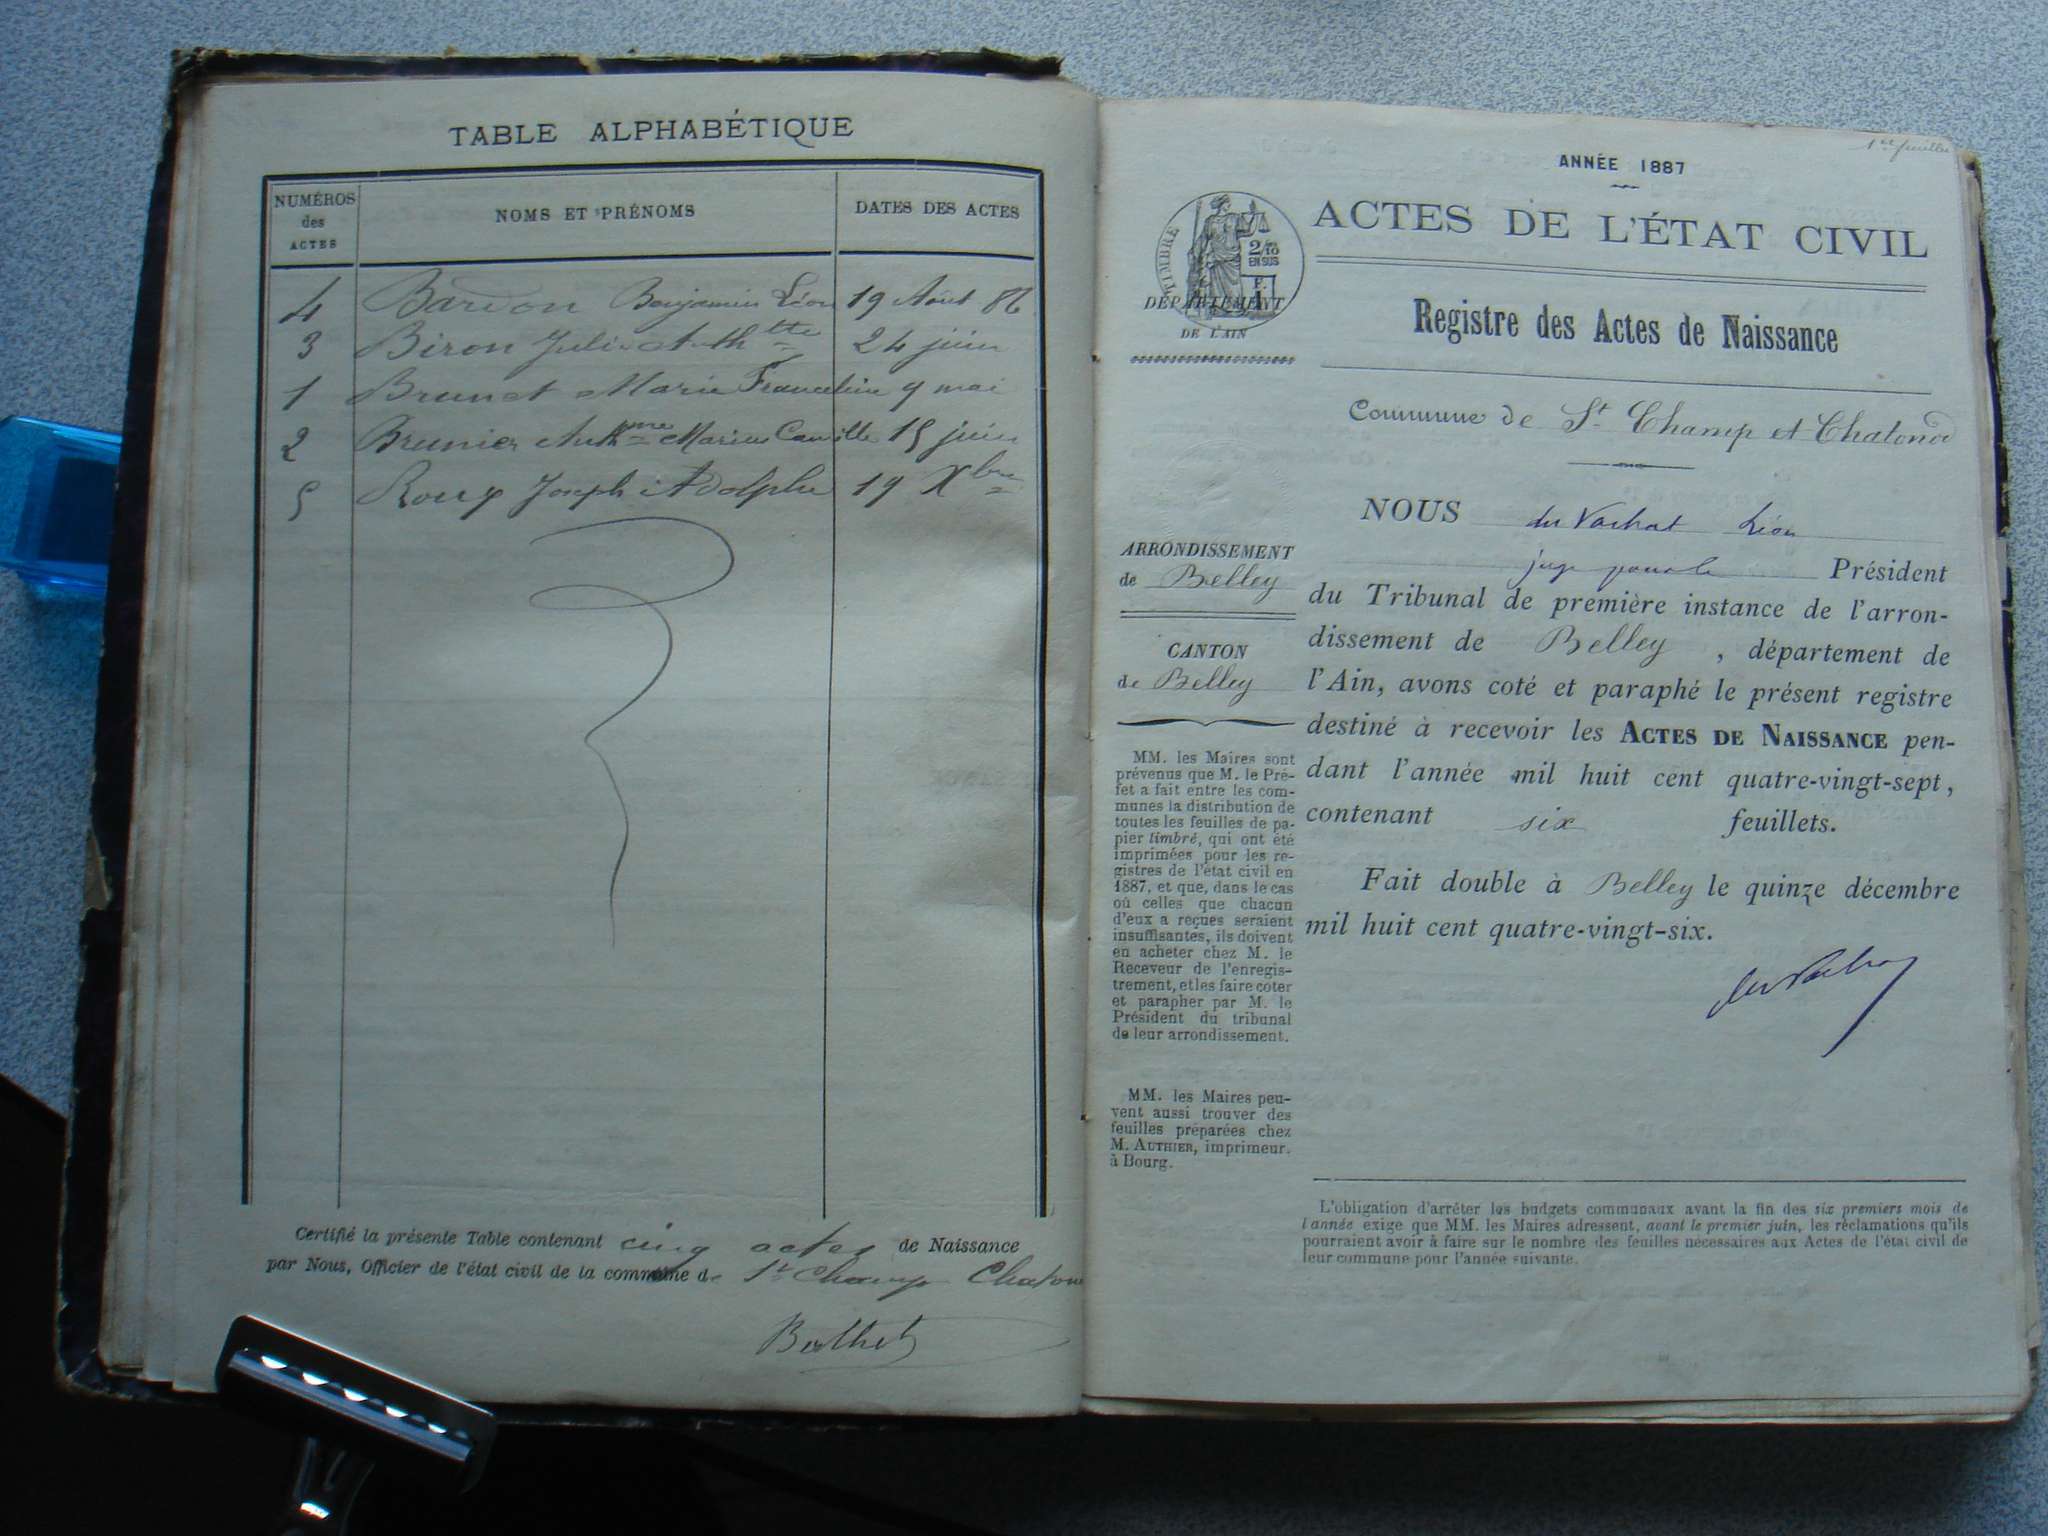 TABLE ALPHABÉTIQUE
NUMÉROS des ACTES
NOMS ET PRÉNOMS
DATES DES ACTES
4 Bardon Benjamin Léon 19 Août 86
3 Biron Julie Anthtte 24 juin
1 Brunet Marie Franceline 9 mai
2 Brunier Anthme Marius Camille 15 juin
5 Roux Joseph Adolphe 19 Xbre
Certifié la présente Table contenant cinq actes de Naissance
par Nous, Officier de l'état civil de la commune de St Champ Chaton
Berthet
1er feuillet
ANNÉE 1887
ACTES DE L'ÉTAT CIVIL
TIMBRE
2/10
EN SUS
DÉPARTEMENT
DE L'AIN
Registre des Actes de Naissance
Commune de St Champ et Chatonod
NOUS du Vachat Léon
juge pour le Président
du Tribunal de première instance de l'arron-
dissement de Belley, département de
l'Ain, avons coté et paraphé le présent registre
destiné à recevoir les ACTES DE NAISSANCE pen-
dant l'année mil huit cent quatre-vingt-sept,
contenant six feuillets.
Fait double à Belley le quinze décembre
mil huit cent quatre-vingt-six.
du Vachat
ARRONDISSEMENT
de Belley
CANTON
de Belley
MM. les Maires sont
prévenus que M. le Pré-
fet a fait entre les com-
munes la distribution de
toutes les feuilles de pa-
pier timbré, qui ont été
imprimées pour les re-
gistres de l'état civil en
1887, et que, dans le cas
où celles que chacun
d'eux a reçues seraient
insuffisantes, ils doivent
en acheter chez M. le
Receveur de l'enregis-
trement, et les faire coter
et parapher par M. le
Président du tribunal
de leur arrondissement.
MM. les Maires peu-
vent aussi trouver des
feuilles préparées chez
M. AUTHIER, imprimeur.
à Bourg.
L'obligation d'arrêter les budgets communaux avant la fin des six premiers mois de
l'année exige que MM. les Maires adressent, avant le premier juin, les réclamations qu'ils
pourraient avoir à faire sur le nombre des feuilles nécessaires aux Actes de l'état civil de
leur commune pour l'année suivante.